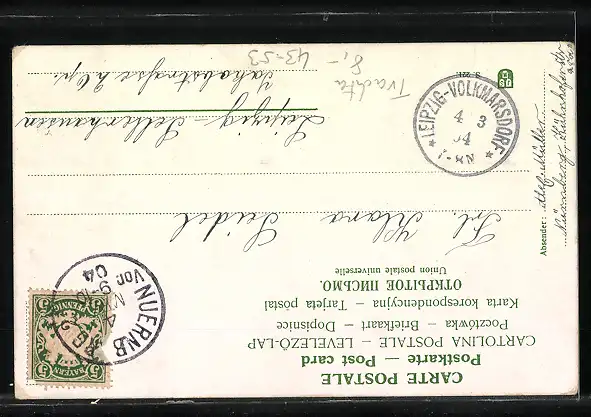 CARTE POSTALE
Postkarte — Post card
CARTOLINA POSTALE – LEVELEZÖ-LAP
Pocztówka – Briefkaart – Dopisnice
Karta korespondencyjna – Tarjeta postal
ОТКРЫТОЕ ПИСЬМО.
Union postale universelle
Frl. Klara Seidel
Leipzig-Sellerhausen
BAYERN
5
5
NUERNB
4
Vor
04
LEIPZIG-VOLKMARSDORF
4 3
04
7-8N
Absender:
Nürnberg,
Trachten
8,-
43-53